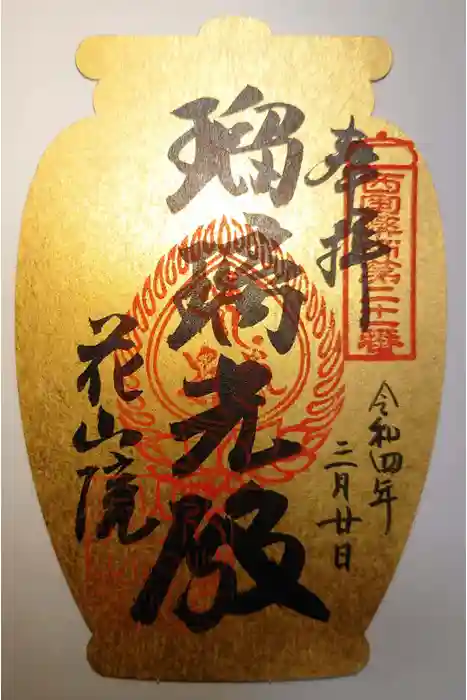 奉拝
西国薬師第二十一番
令和四年
三月廿日
瑠璃光殿
花山院